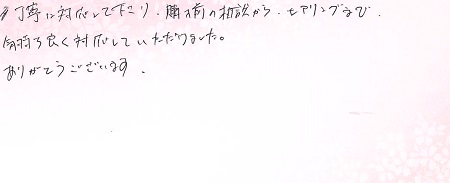 丁寧に対応して下さり、購入前の相談から、ヒアリングまで、
気持ち良く対応していただけました。
ありがとうございます。